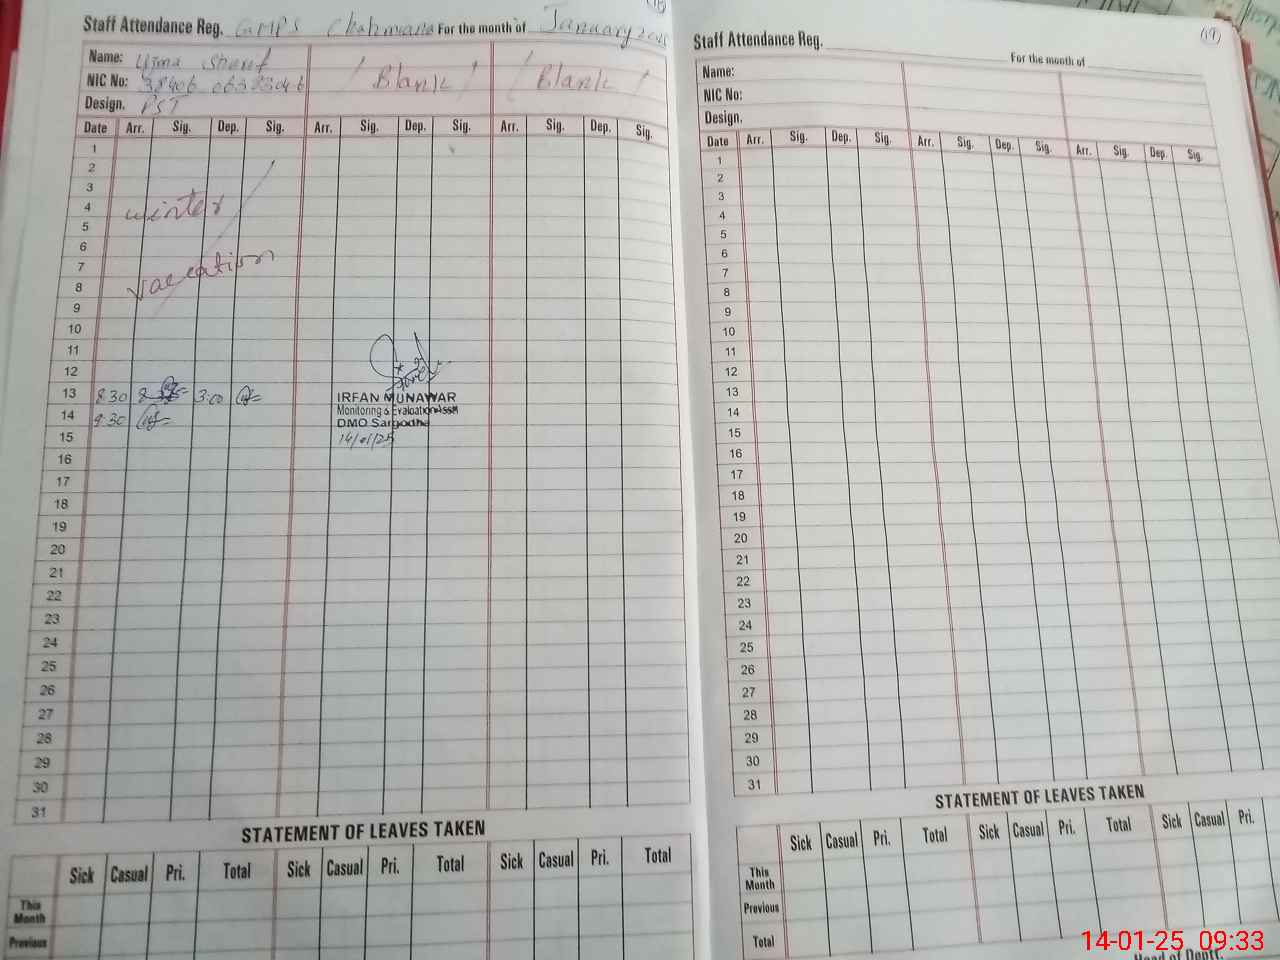 Staff Attendance Reg. GMPS Chahmana For the month of January
Name:
NIC No: 38406 0638304 6 / Blank / / Blank /
Design. PST
Date Arr. Sig. Dep. Sig. Arr. Sig. Dep. Sig. Arr. Sig. Dep. Sig.
1
2
3
4 winter
5
6
7
8 vaccation
9
10
11
12
13 8:30 3:00
IRFAN MUNAWAR
14 8:30
Monitoring & Evaluation
DMO Sargodha
15
14/01/25
16
17
18
19
20
21
22
23
24
25
26
27
28
29
30
31
STATEMENT OF LEAVES TAKEN
Sick Casual Pri. Total Sick Casual Pri. Total Sick Casual Pri. Total
This Month
Previous
(17)
Staff Attendance Reg. For the month of
Name:
NIC No:
Design.
Date Arr. Sig. Dep. Sig. Arr. Sig. Dep. Sig. Arr. Sig. Dep. Sig.
1
2
3
4
5
6
7
8
9
10
11
12
13
14
15
16
17
18
19
20
21
22
23
24
25
26
27
28
29
30
31
STATEMENT OF LEAVES TAKEN
Sick Casual Pri. Total Sick Casual Pri. Total Sick Casual Pri.
This Month
Previous
Total
Head of Deptt.
14-01-25 09:33